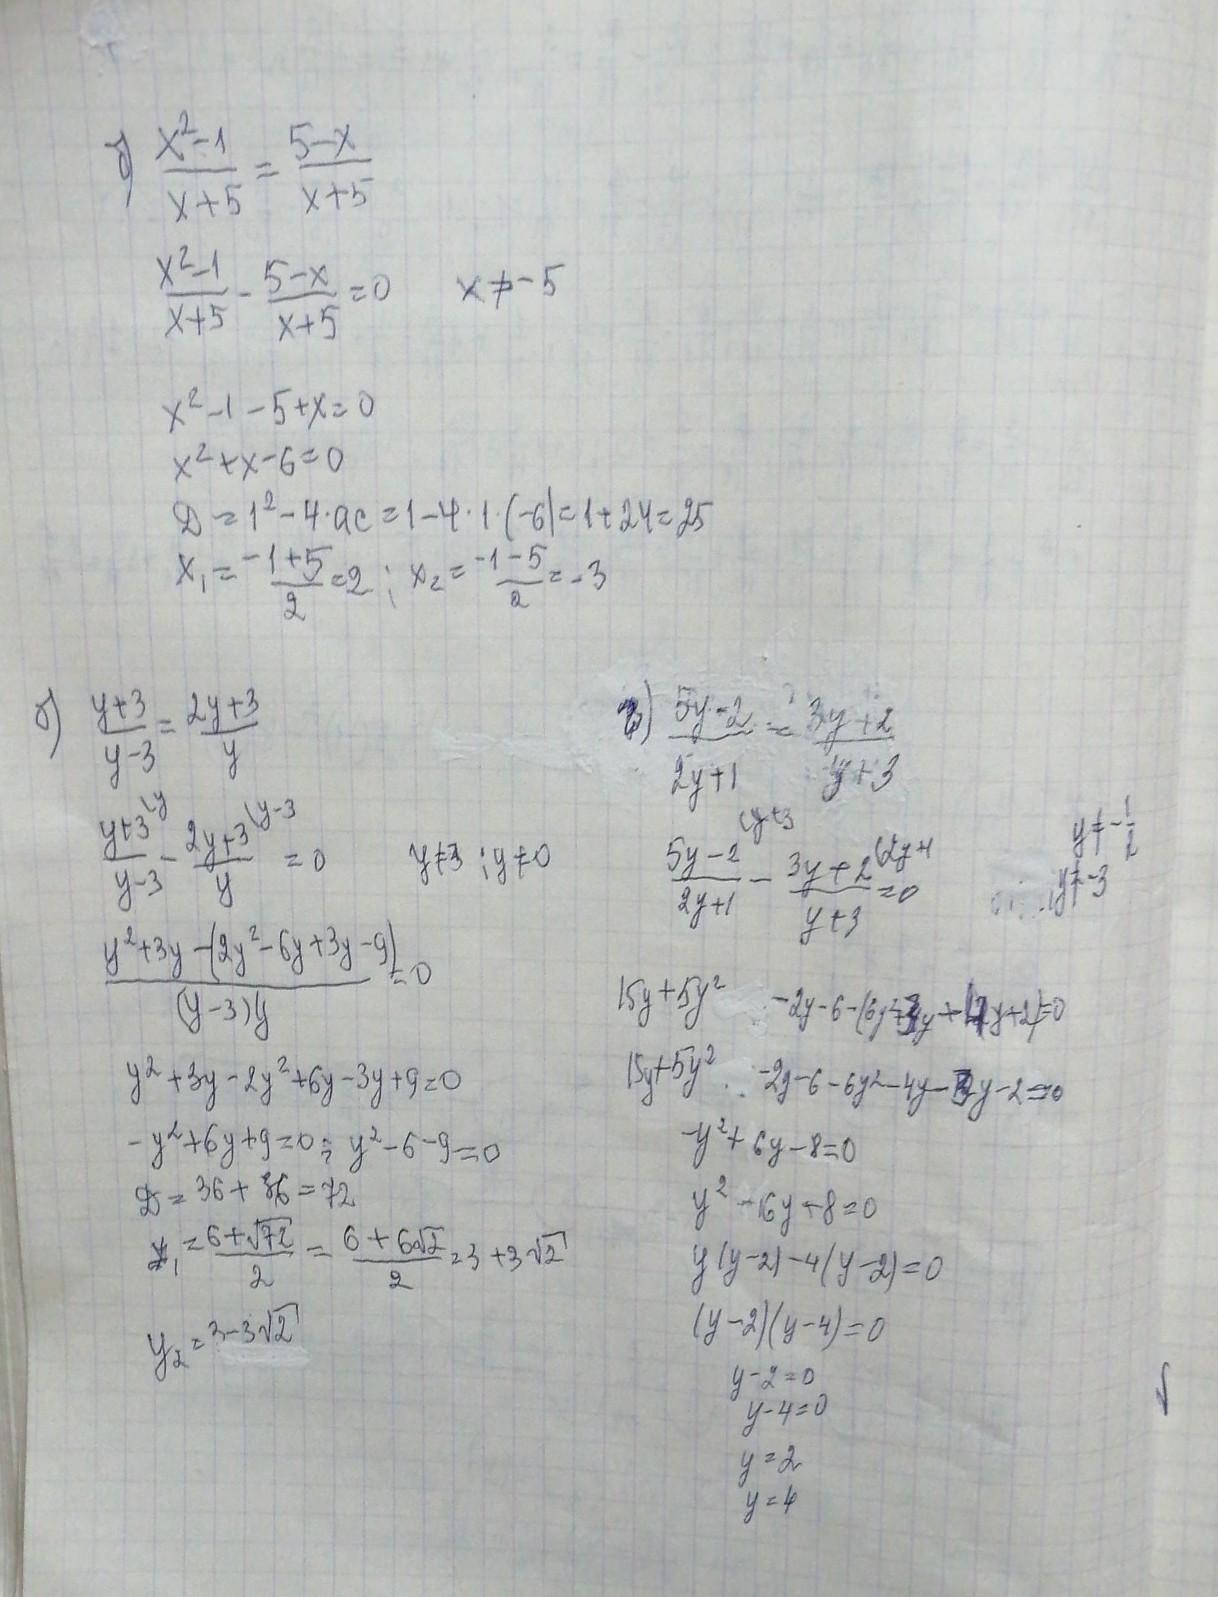 б) (x²-1)/(x+5) = (5-x)/(x+5)
(x²-1)/(x+5) - (5-x)/(x+5) = 0 x≠-5
x²-1-5+x=0
x²+x-6=0
D=1²-4·ac=1-4·1·(-6)=1+24=25
x₁=(-1+5)/2=2; x₂=(-1-5)/2=-3
б) (y+3)/(y-3) = (2y+3)/y
(y+3)/(y-3) \y - (2y+3)/y \y-3 =0 y≠3; y≠0
(y²+3y-(2y²-6y+3y-9))/((y-3)y)=0
y²+3y-2y²+6y-3y+9=0
-y²+6y+9=0; y²-6-9=0
D=36+36=72
y₁=(6+√72)/2=(6+6√2)/2=3+3√2
y₂=3-3√2
(5y-2)/(2y+1) = (3y+2)/(y+3)
(5y-2)/(2y+1) \y+3 - (3y+2)/(y+3) \2y+1 =0 y≠-1/2
y≠-3
15y+5y² -2y-6-(6y²+3y+4y+2)=0
15y+5y² -2y-6-6y²-4y-3y-2=0
-y²+6y-8=0
y²-6y+8=0
y(y-2)-4(y-2)=0
(y-2)(y-4)=0
y-2=0
y-4=0
y=2
y=4